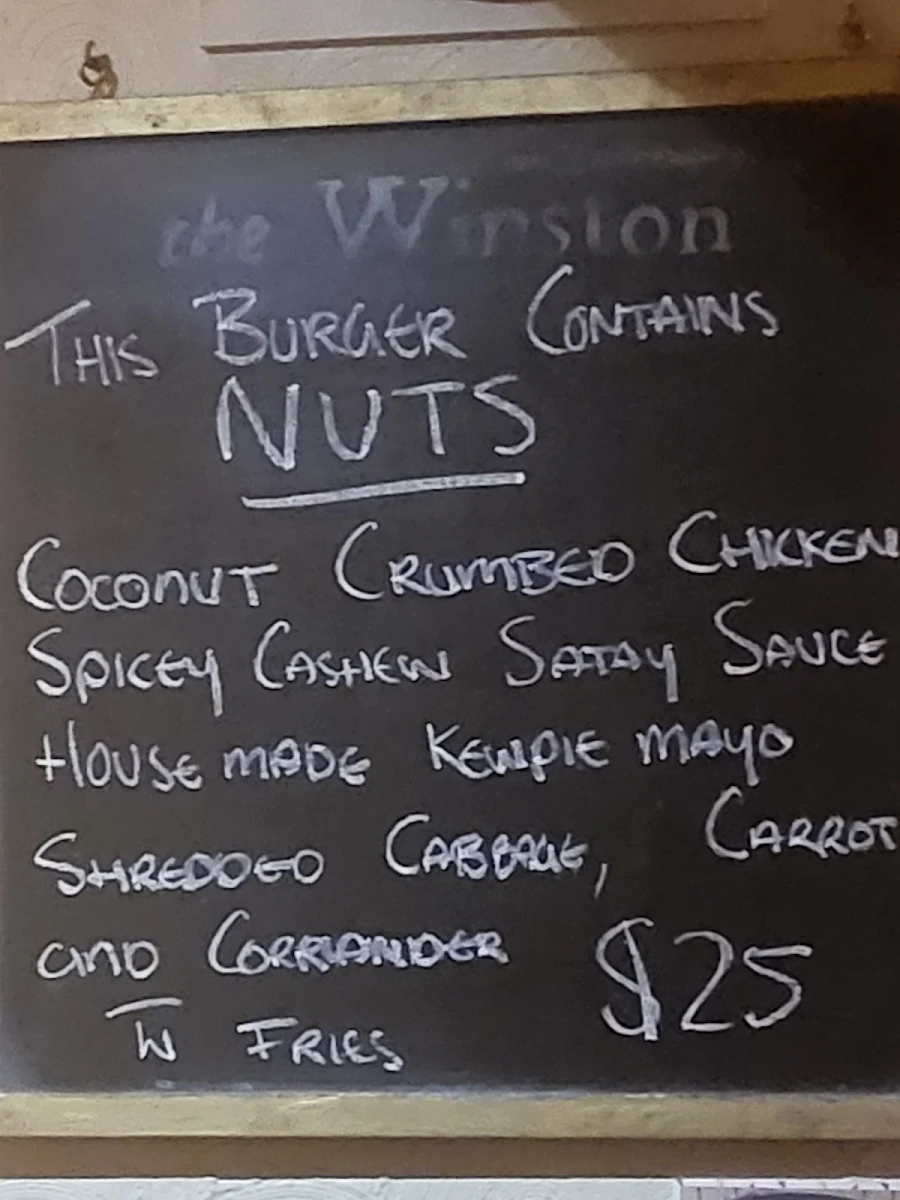 the Winston
THIS BURGER CONTAINS
NUTS
COCONUT CRUMBED CHICKEN
SPICEY CASHEW SATAY SAUCE
HOUSE MADE KEWPIE MAYO
SHREDDED CABBAGE, CARROT
and CORRIANDER
$25
W FRIES